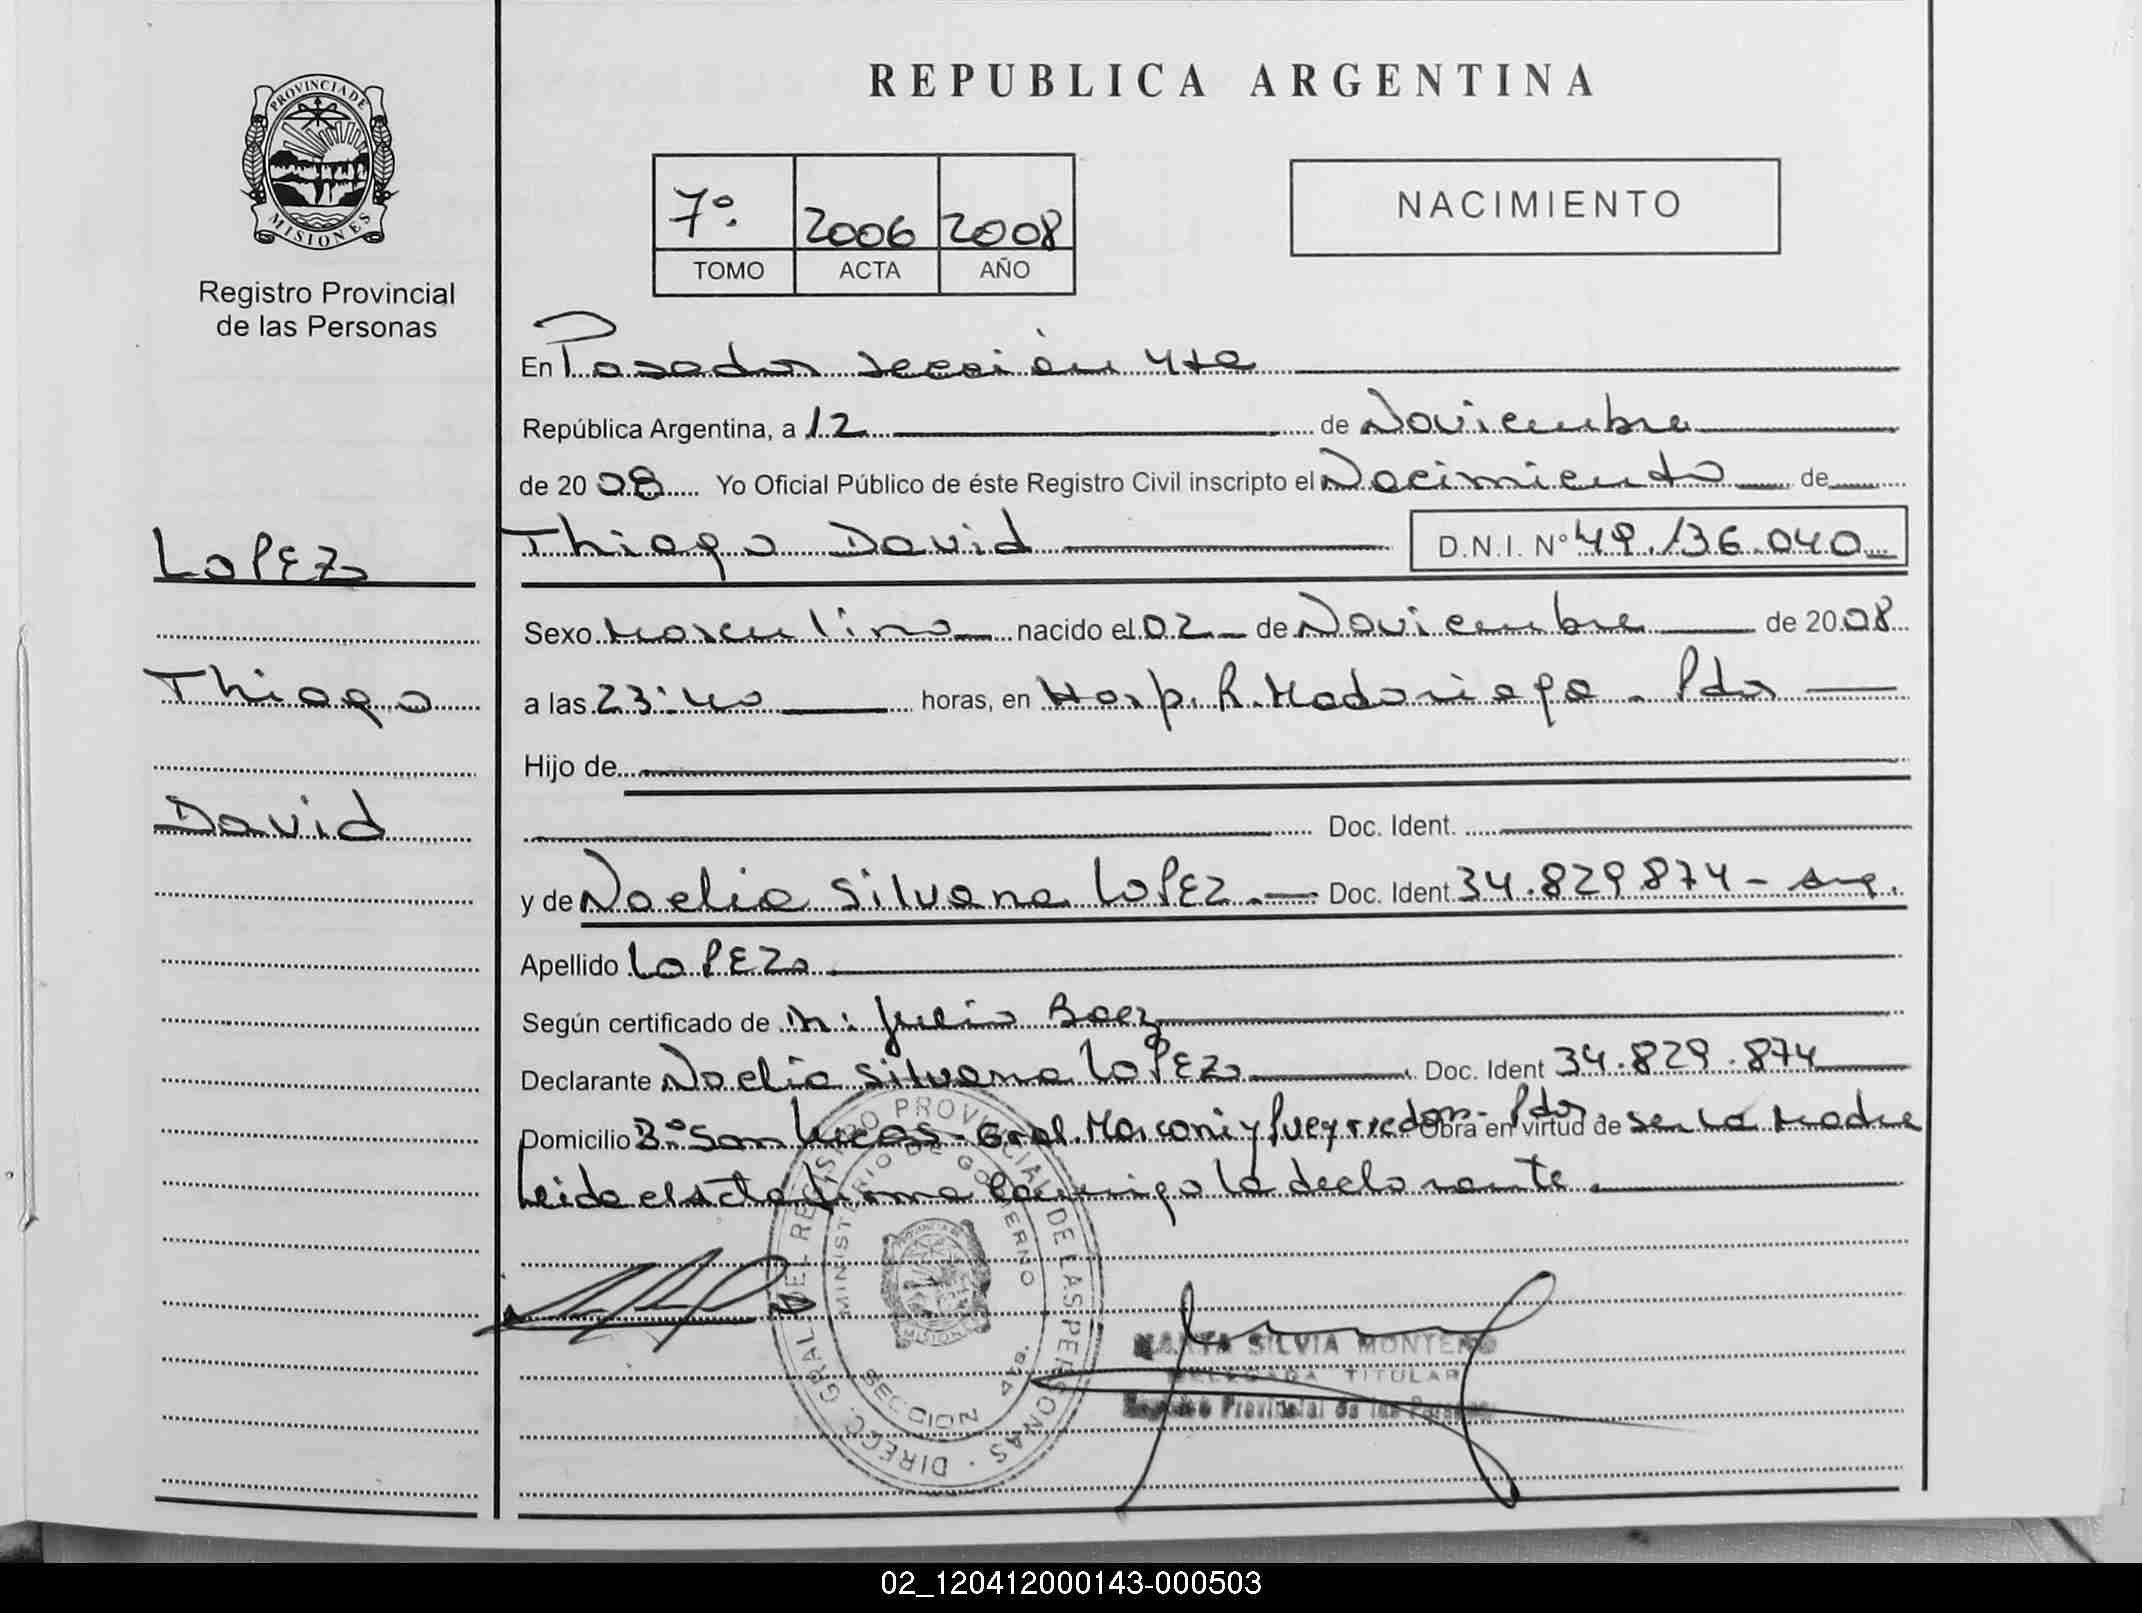 REPUBLICA ARGENTINA
PROVINCIA DE
MISIONES
Registro Provincial
de las Personas
7º. 2006 2008
TOMO ACTA AÑO
NACIMIENTO
En Posadas sección 4ta
República Argentina, a 12 de Noviembre
de 2008 Yo Oficial Público de éste Registro Civil inscripto el Nacimiento de
LoPEZ
Thiago David D.N.I. Nº 49.136.040
Sexo Masculino nacido el 02 de Noviembre de 2008
Thiago
a las 23:40 horas, en Hosp. R. Madariaga - Pdas
Hijo de
David
Doc. Ident.
y de Noelia Silvana LoPEZ.- Doc. Ident. 34.829.874 - Arg.
Apellido LoPEZ
Según certificado de Julio Baez
Declarante Noelia Silvana LoPEZ Doc. Ident 34.829.874
Domicilio Bº San Lucas - Gral. Mosconi y Pueyrredon - Pdas Obra en virtud de ser la Madre
Leida el acta firma conmigo la declarante.
DIRECC. GRAL. DEL REGISTRO PROVINCIAL DE LAS PERSONAS
MINISTERIO DE GOBIERNO
SECCION 4ta.
MISIONES
MARTA SILVIA MONTERO
DELEGADA TITULAR
Registro Provincial de las Personas
02_120412000143-000503